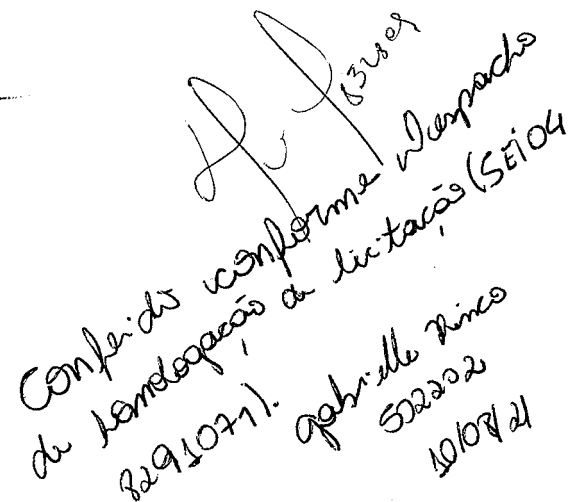 83280S
Conferido conforme Despacho
de homologação da licitação (SEI 04
8291071).
Gabrielle Rinco
502202
10/08/21